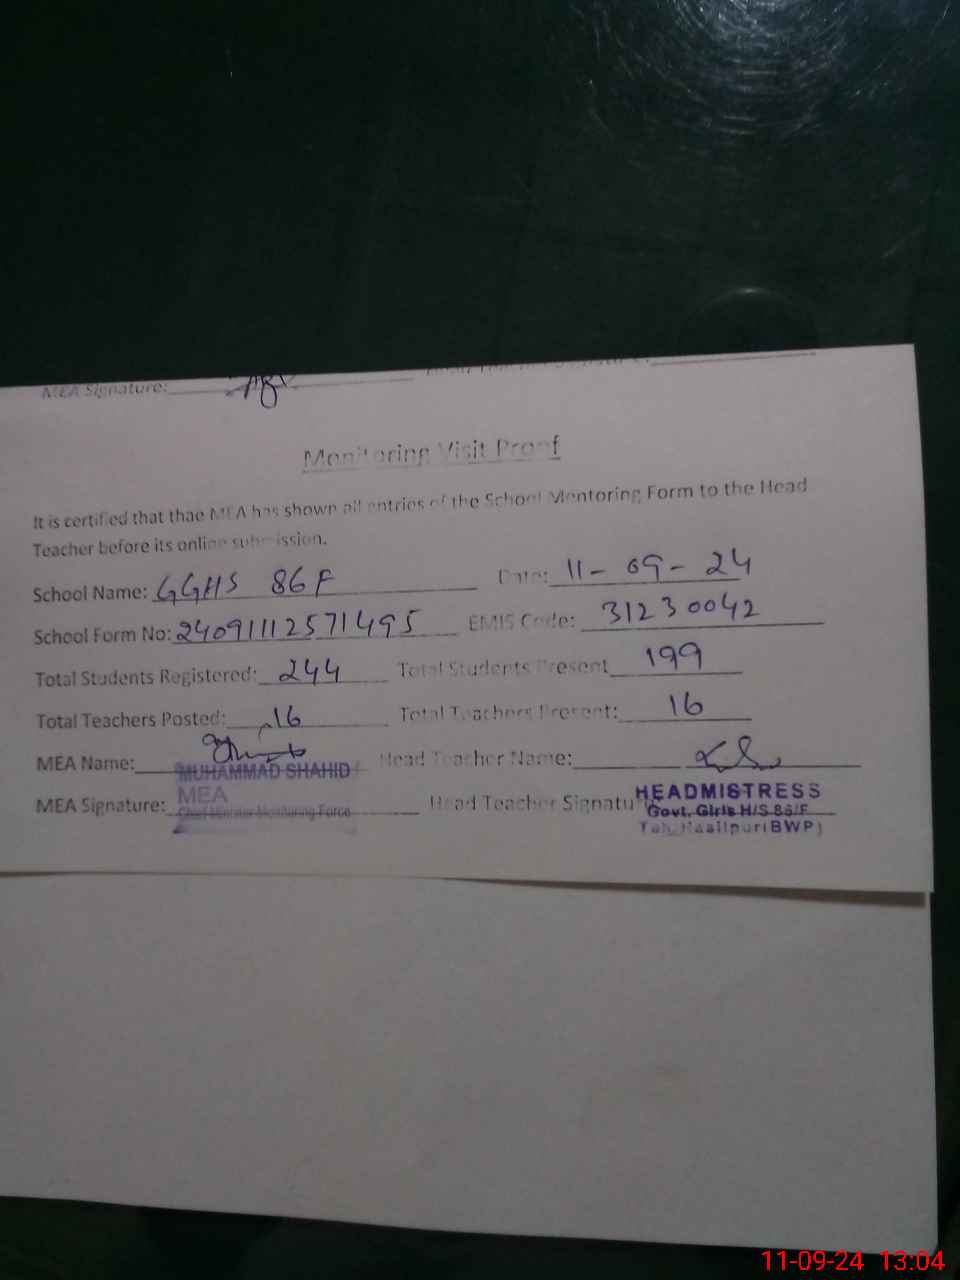 MEA Signature:
Monitoring Visit Proof
It is certified that thae MEA has shown all entries of the School Mentoring Form to the Head
Teacher before its online submission.
School Name: GGHS 86F Date: 11-09-24
School Form No: 24091112571495 EMIS Code: 31230042
Total Students Registered: 244 Total Students Present 199
Total Teachers Posted: 16 Total Teachers Present: 16
MEA Name: MUHAMMAD SHAHID Head Teacher Name:
MEA Signature: MEA Head Teacher Signature HEADMISTRESS
Chief Minister Monitoring Force Govt. Girls H/S 86/F
Teh. Hasilpur(BWP)
11-09-24 13:04